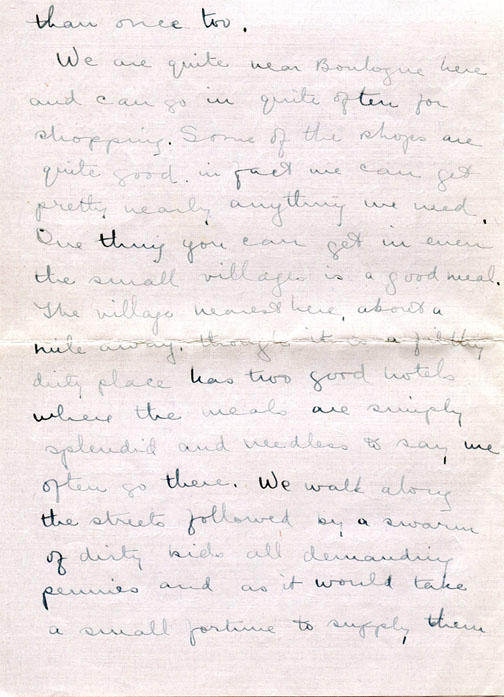 than once too.
We are quite near Boulogne here
and can go in quite often for
shopping. Some of the shops are
quite good. in fact we can get
pretty nearly anything we need.
One thing you can get in even
the small villages is a good meal.
The village nearest here, about a
mile away. though it is a filthy
dirty place has two good hotels
where the meals are simply
splendid and needless to say, we
often go there. We walk along
the streets followed by a swarm
of dirty kids all demanding
pennies and as it would take
a small fortune to supply them